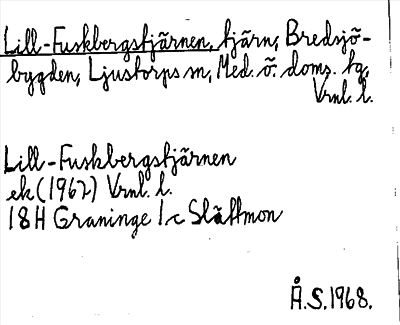 Lill-Fuskbergstjärnen, tjärn, Bredsjö-
bygden, Ljustorps sn, Med. ö. doms. tg,
Vrnl. l.
Lill-Fuskbergstjärnen
ek (1967) Vrnl. l.
18H Graninge 1c Slättmon
Å.S. 1968.